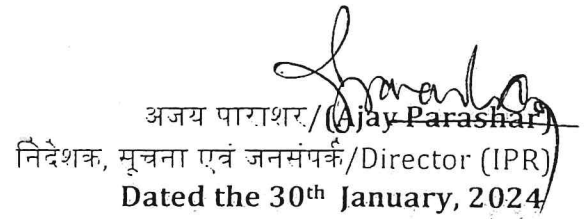 अजय पाराशर/(Ajay Parashar)
निदेशक, सूचना एवं जनसंपर्क/Director (IPR)
Dated the 30th January, 2024